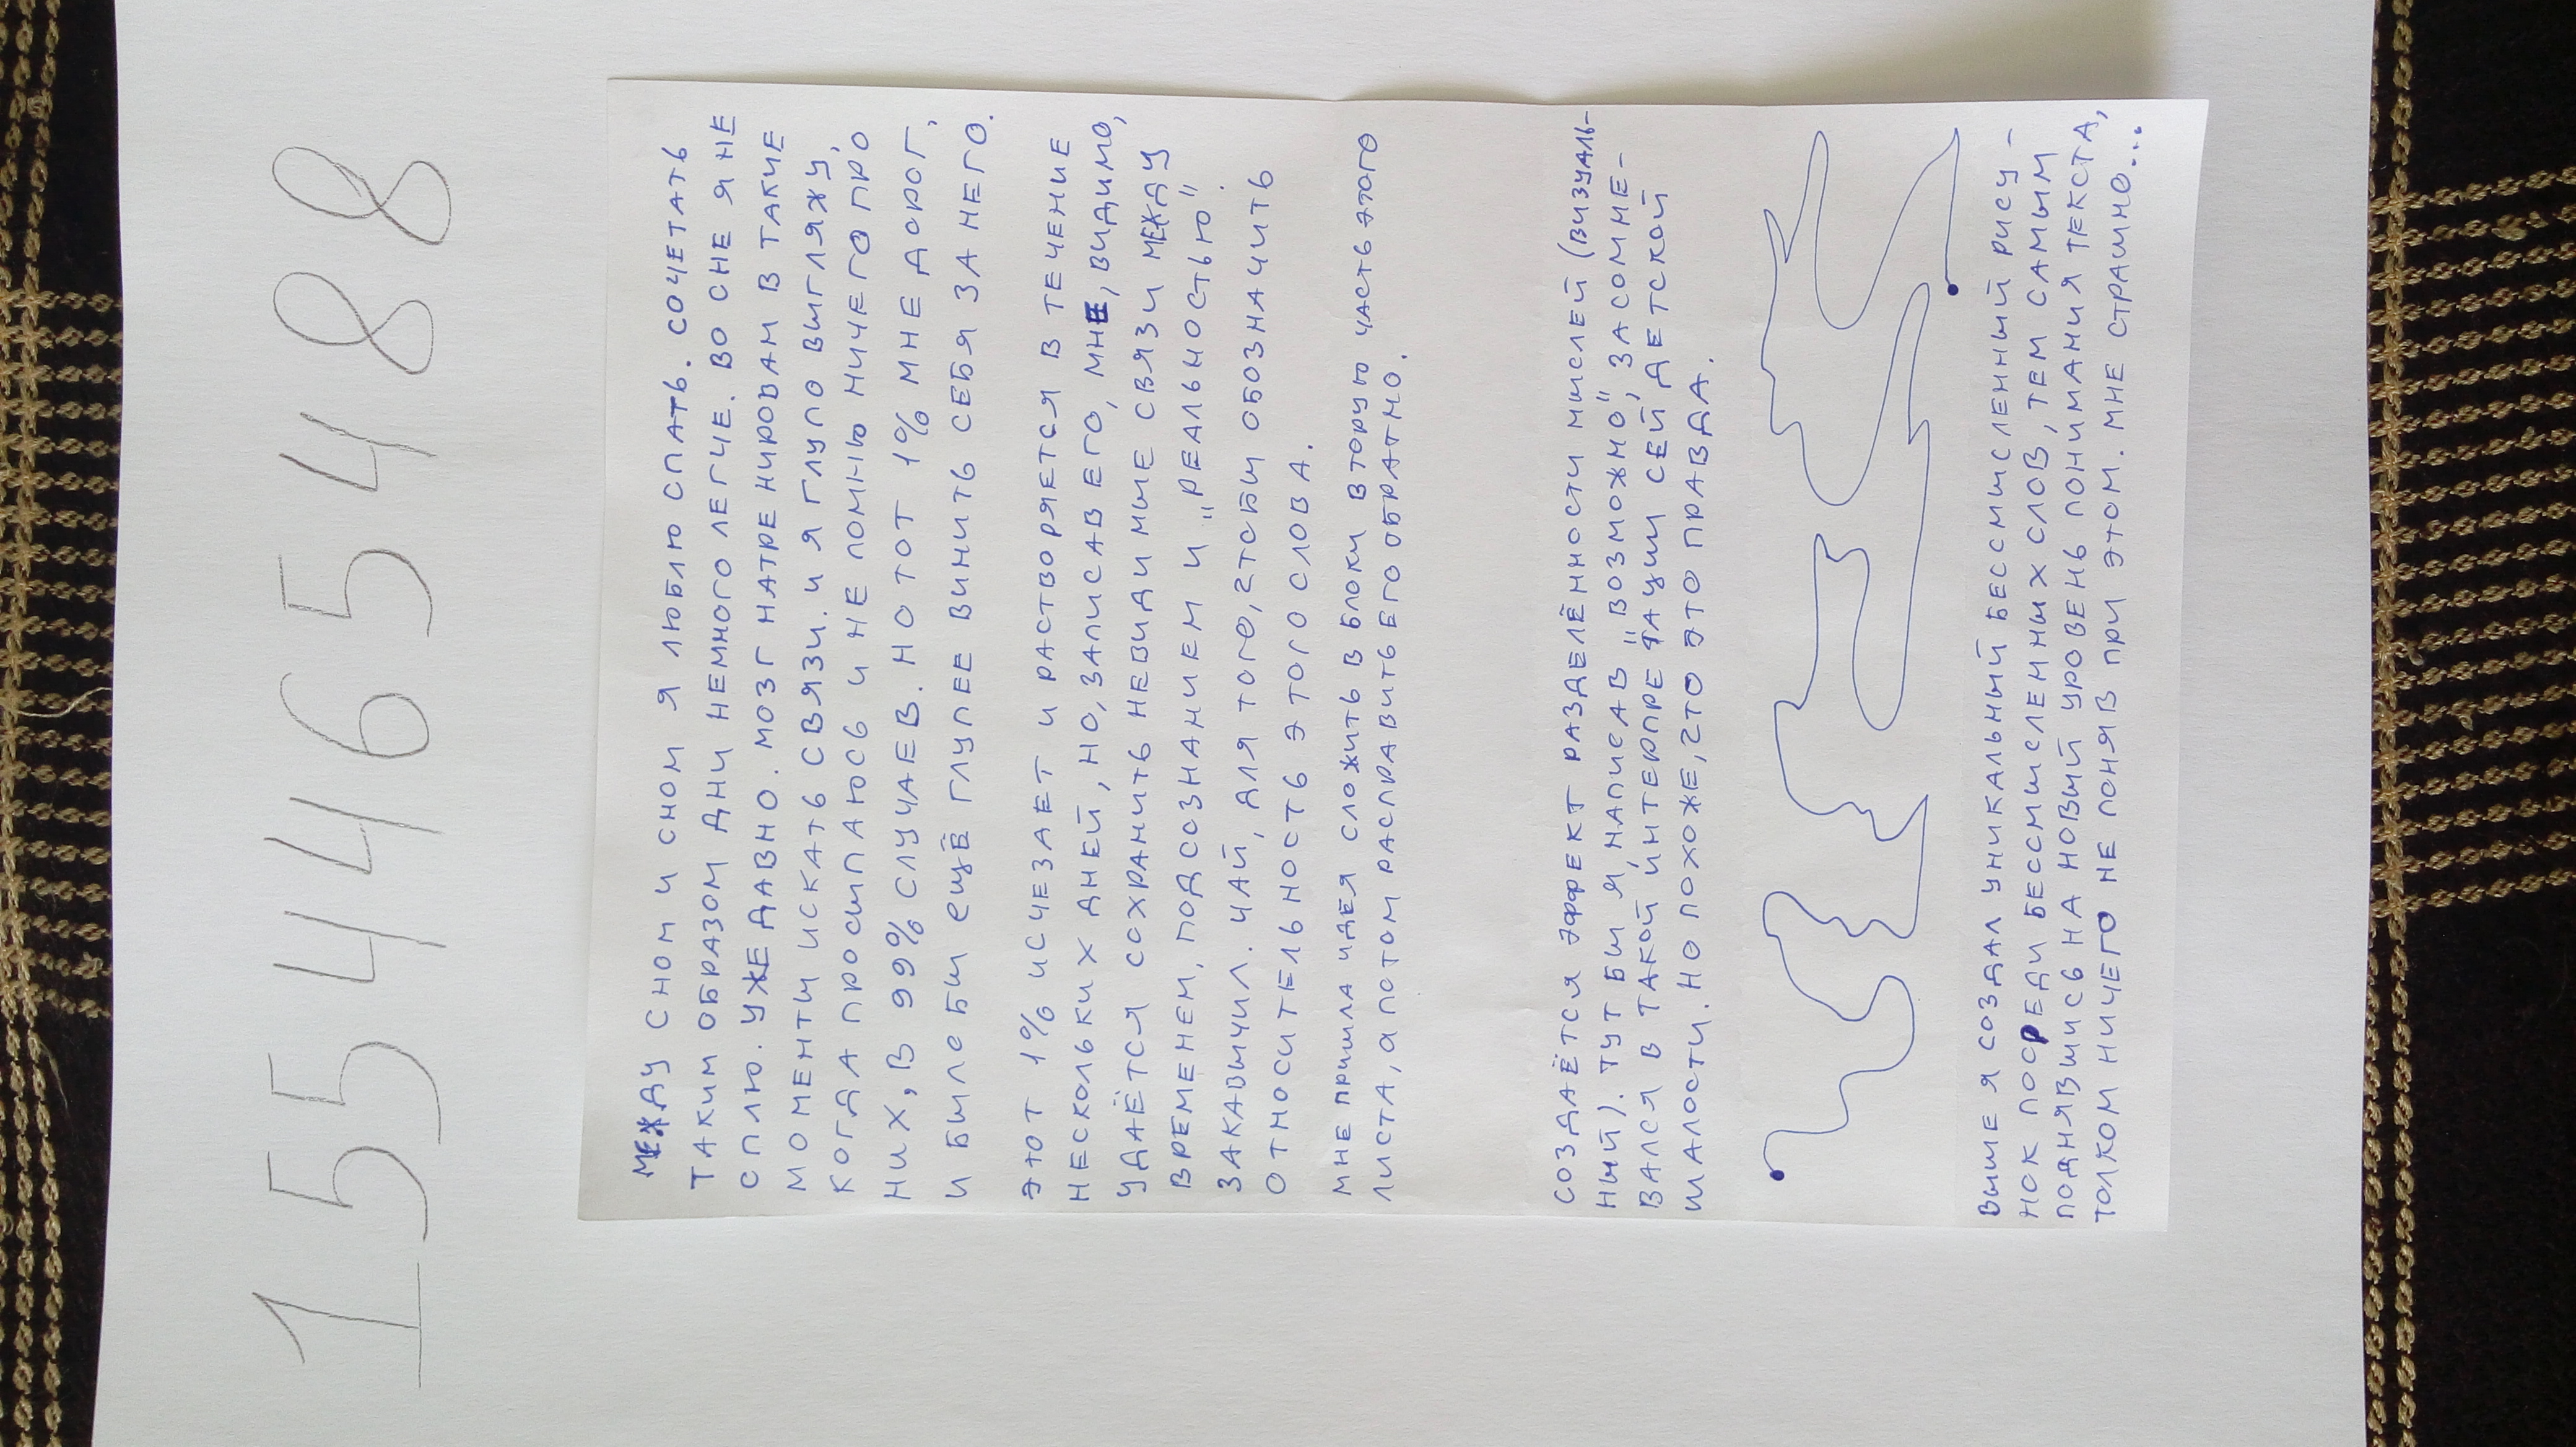 155446 5488
МЕЖДУ СНОМ И СНОМ Я ЛЮБЛЮ СПАТЬ. СОЧЕТАТЬ
ТАКИМ ОБРАЗОМ ДНИ НЕМНОГО ЛЕГЧЕ. ВО СНЕ Я НЕ
СПЛЮ. УЖЕ ДАВНО. МОЗГ НАТРЕНИРОВАН В ТАКИЕ
МОМЕНТЫ ИСКАТЬ СВЯЗИ. И Я ГЛУПО ВЫГЛЯЖУ,
КОГДА ПРОСЫПАЮСЬ И НЕ ПОМНЮ НИЧЕГО ПРО
НИХ, В 99% СЛУЧАЕВ. НО ТОТ 1% МНЕ ДОРОГ,
И БЫЛО БЫ ЕЩЁ ГЛУПЕЕ ВИНИТЬ СЕБЯ ЗА НЕГО.
ЭТОТ 1% ИСЧЕЗАЕТ И РАСТВОРЯЕТСЯ В ТЕЧЕНИЕ
НЕСКОЛЬКИХ ДНЕЙ, НО, ЗАПИСАВ ЕГО, МНЕ, ВИДИМО,
УДАЁТСЯ СОХРАНИТЬ НЕВИДИМЫЕ СВЯЗИ МЕЖДУ
ВРЕМЕНЕМ, ПОДСОЗНАНИЕМ И „РЕАЛЬНОСТЬЮ".
ЗАКАВЫЧИЛ. ЧАЙ, ДЛЯ ТОГО, ЧТОБЫ ОБОЗНАЧИТЬ
ОТНОСИТЕЛЬНОСТЬ ЭТОГО СЛОВА.
МНЕ ПРИШЛА ИДЕЯ СЛОЖИТЬ В БЛОКИ ВТОРУЮ ЧАСТЬ ЭТОГО
ЛИСТА, А ПОТОМ РАСПРАВИТЬ ЕГО ОБРАТНО.
СОЗДАЁТСЯ ЭФФЕКТ РАЗДЕЛЁННОСТИ МЫСЛЕЙ (ВИЗУАЛЬ-
НЫЙ). ТУТ БЫ Я, НАПИСАВ „ВОЗМОЖНО", ЗАСОМНЕ-
ВАЛСЯ В ТАКОЙ ИНТЕРПРЕТАЦИИ СЕЙ ДЕТСКОЙ
ШАЛОСТИ. НО ПОХОЖЕ, ЧТО ЭТО ПРАВДА.
ВЫШЕ Я СОЗДАЛ УНИКАЛЬНЫЙ БЕССМЫСЛЕННЫЙ РИСУ-
НОК ПОСРЕДИ БЕССМЫСЛЕННЫХ СЛОВ, ТЕМ САМЫМ
ПОДНЯВШИСЬ НА НОВЫЙ УРОВЕНЬ ПОНИМАНИЯ ТЕКСТА,
ТОЛКОМ НИЧЕГО НЕ ПОНЯВ ПРИ ЭТОМ. МНЕ СТРАШНО...